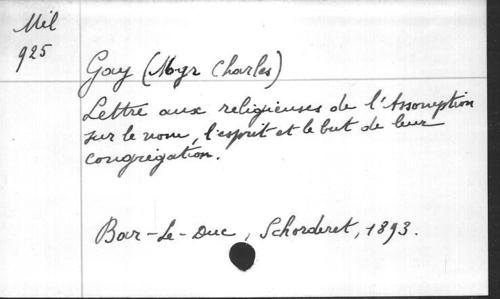 Mil
925
Gay (Mgr Charles)
Lettre aux religieuses de l'Assomption
sur le nom, l'esprit et le but de leur
congrégation.
Bar-Le-Duc, Schorderet, 1893.